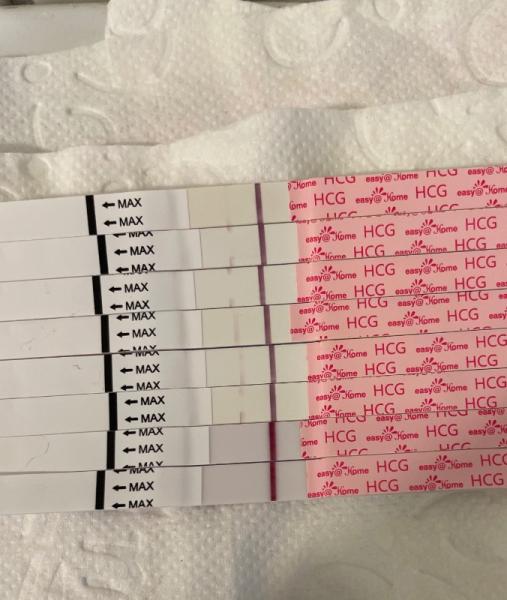 easy@Home HCG easy@Home
← MAX HCG easy@Home HCG easy@Home
← MAX
MAX easy@Home HCG
← MAX easy@Home HCG easy@Home
← MAX
← MAX easy@Home HCG easy@Home
← MAX easy@Home HCG easy@Home
← MAX HCG easy@Home HCG
← MAX easy@Home HCG easy@Home
← MAX
← MAX easy@Home HCG easy@Home
← MAX easy@Home HCG easy@Home
← MAX
← MAX easy@Home HCG easy@Home
← MAX easy@Home HCG easy@Home
← MAX HCG easy@Home HCG
← MAX easy@Home HCG easy@Home
← MAX
← MAX easy@Home HCG easy@Home
← MAX easy@Home HCG easy@Home
← MAX